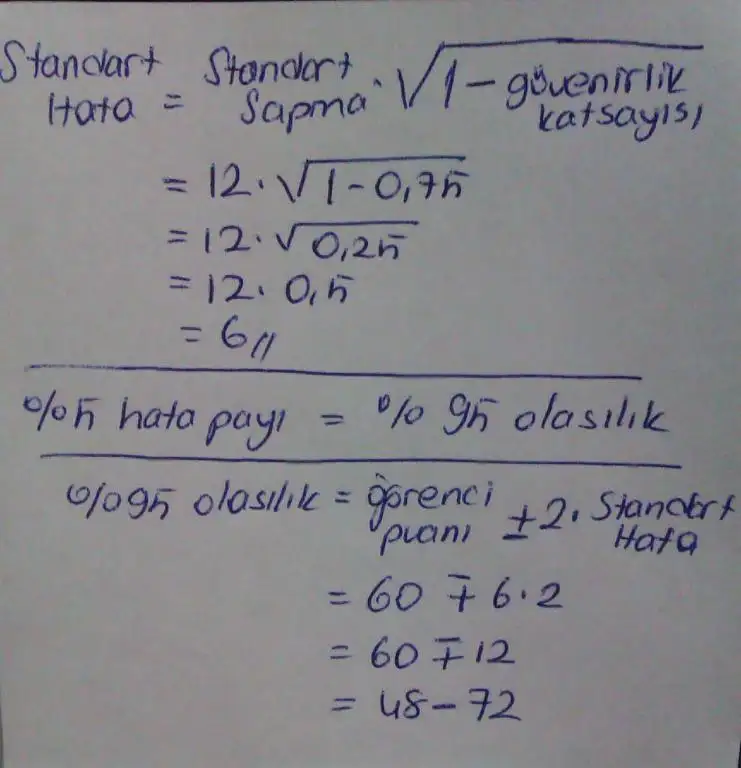 Standart Hata = Standart Sapma · √1 - güvenirlik katsayısı
= 12 · √1 - 0,75
= 12 · √0,25
= 12 · 0,5
= 6 //
%5 hata payı = %95 olasılık
%95 olasılık = öğrenci puanı ± 2 · Standart Hata
= 60 ∓ 6 · 2
= 60 ∓ 12
= 48 - 72